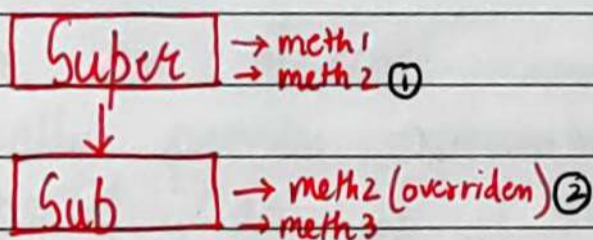 Super → meth1
→ meth2 ①
Sub → meth2 (overriden) ②
→ meth3